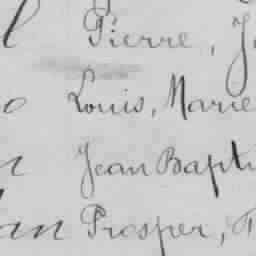 Pierre, J
Louis, Marie
Jean Bapti
an Prosper,